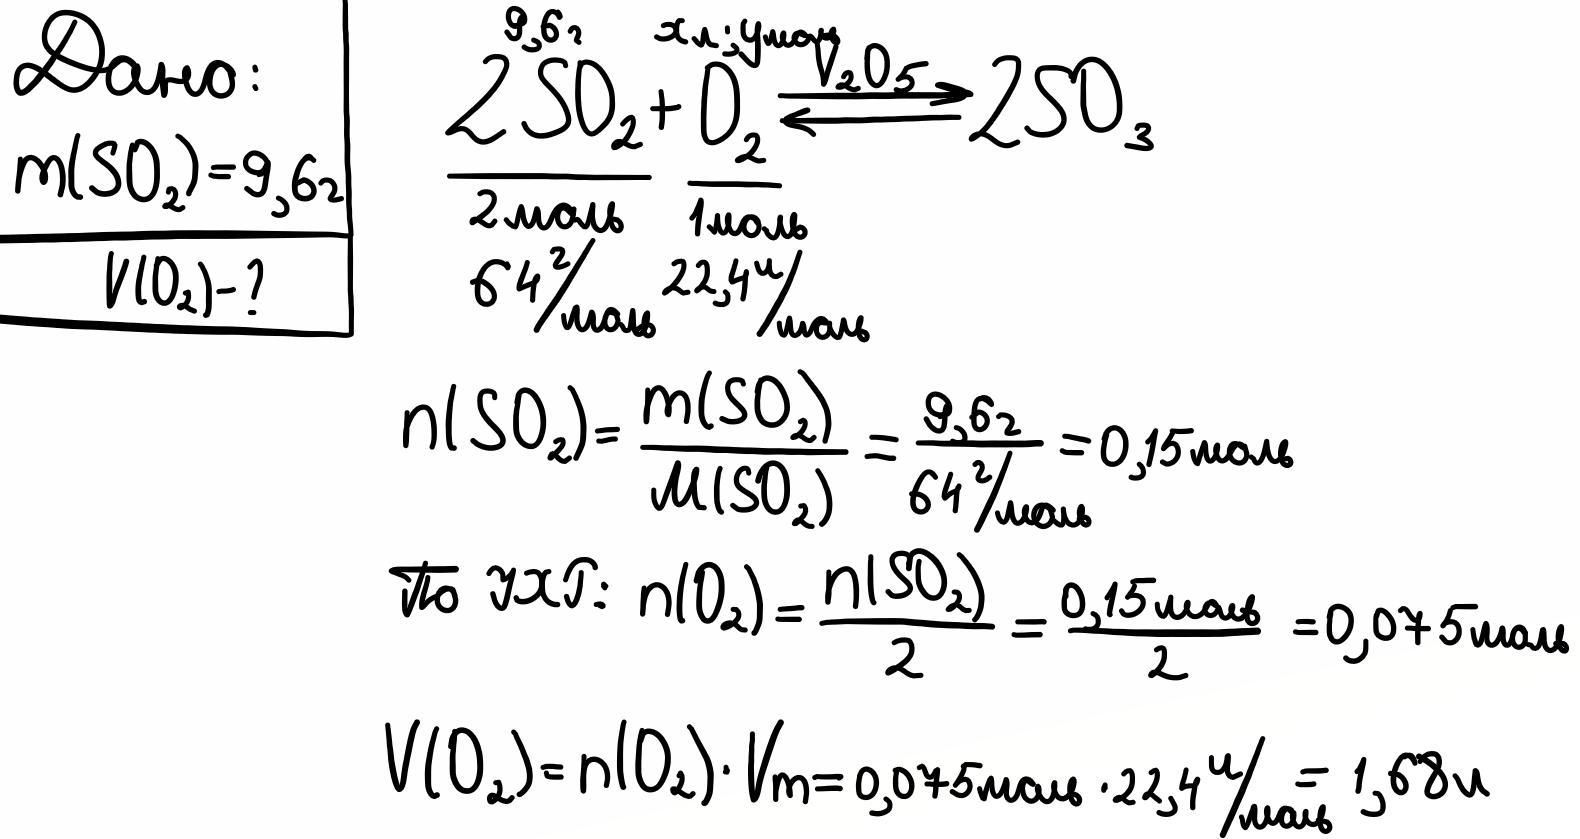 Дано:
m(SO₂)=9,6г
V(O₂)-?
9,6г хл; yмоль
2SO₂ + O₂ V₂O₅ ⇄ 2SO₃
2моль 1моль
64г/моль 22,4л/моль
n(SO₂) = m(SO₂)/M(SO₂) = 9,6г/64г/моль = 0,15моль
По УХР: n(O₂) = n(SO₂)/2 = 0,15моль/2 = 0,075моль
V(O₂) = n(O₂)·Vm = 0,075моль·22,4л/моль = 1,68л